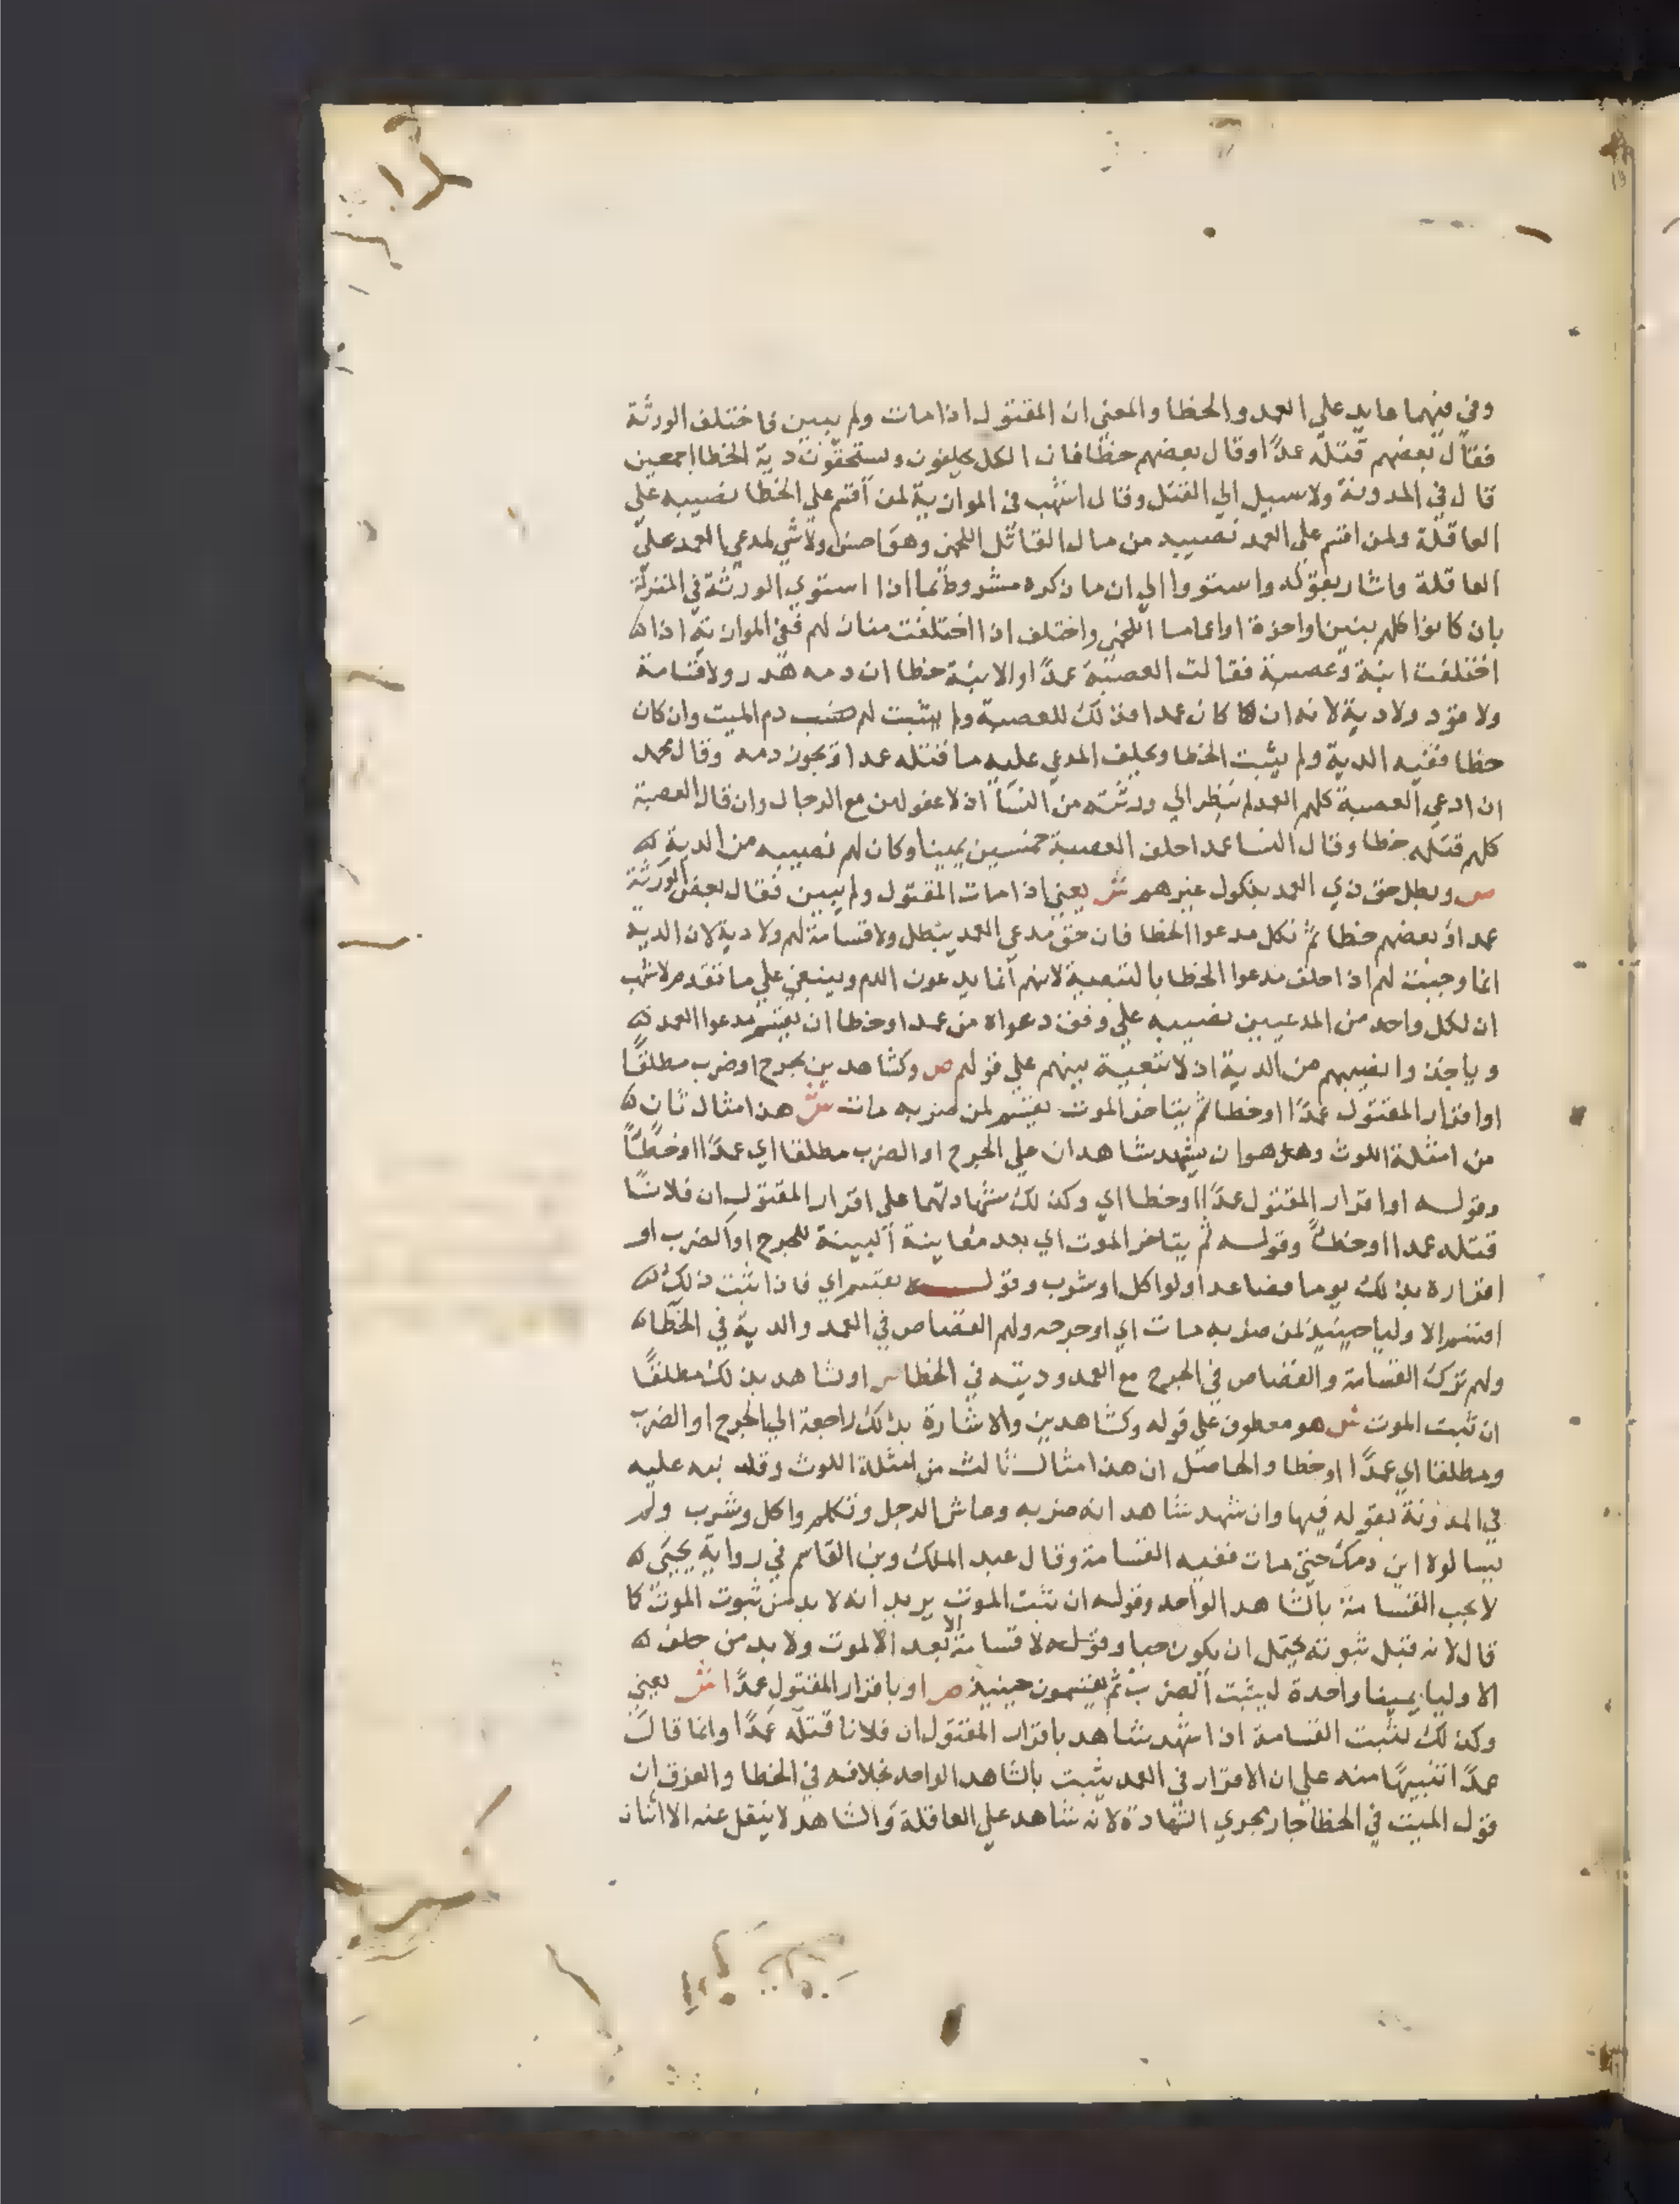 وفي فيهما عايد علي العمد والخطا والمعني ان المقتول اذا مات ولم يبين فاختلف الورثة
فقال بعضهم قتله عمدًا وقال بعضهم خطًا فان الكل يحلفون ويستحقون دية الخطا اجمعين
قال في المدونة ولا سبيل الي القتل وقال اشهب في الموازية لمن اقسم علي الخطا نصيبه علي
العاقلة ولمن اقسم علي العمد نصيبه من مال القاتل اللخمي وهو احسن ولا شي لمدعي العمد علي
العاقلة واشار بقوله واستووا الي ان ما ذكره مشروط بما اذا استوي الورثة في المنزلة
بان كانوا كلهم بنين او اخوة او اعماما اللخمي واختلف اذا اختلفت منازلهم ففي الموازية اذا
اختلفت ابنة وعصبة فقالت العصبة عمدًا والابنة خطا ان دمه هدر ولا قسامة
ولا قود ولا دية لانه ان كان عمدا فذلك للعصبة ولم يثبت لهم دم الميت وان كان
خطا ففيه الدية ولم يثبت الخطا ويحلف المدعي عليه ما قتله عمدا ويجوز دمه وقال محمد
ان ادعي العصبة كلهم العمد لم ينظر الي ورثته من النسا اذ لا عفو لهن مع الرجال وان قال العصبة
كلهم قتله خطا وقال النسا عمدا حلف العصبة خمسين يمينا وكان لهم نصيبه من الدية
ص وبطل حق ذي العمد بنكول غيرهم ش يعني اذا مات المقتول ولم يبين فقال بعض الورثة
عمدا وبعضهم خطا ثم نكل مدعوا الخطا فان حق مدعي العمد يبطل ولا قسامة لهم ولا دية لان الدية
انما وجبت لهم اذا حلف مدعوا الخطا بالتبعية لانهم انما يدعون الدم وينبغي علي ما تقدم لاشهب
ان لكل واحد من المدعيين نصيبه علي وفق دعواه من عمد او خطا ان يقسم مدعوا العمد
وياخذوا نصيبهم من الدية اذ لا تبعية بينهم علي قولهم ص وكشاهدين بجرح او ضرب مطلقًا
او اقرار المقتول عمدًا او خطا ثم يتاخر الموت يقسم لمن ضربه مات ش هذا مثال ثان
من امثلة اللوث وهو ان يشهد شاهدان علي الجرح او الضرب مطلقا اي عمدًا او خطًا
وقوله او اقرار المقتول عمدًا او خطا اي وكذلك شهادتهما علي اقرار المقتول ان فلانًا
قتله عمدا او خطأً وقوله ثم يتاخر الموت اي بعد معاينة البينة للجرح او الضرب او
اقراره بذلك يوما فصاعدا ولو اكل او شرب وقوله يقسم اي فاذا ثبت ذلك
اقسم الاوليا حينيذ لمن ضربه مات اي او جرحه ولهم القصاص في العمد والدية في الخطا
ولهم ترك القسامة والقصاص في الجرح مع العمد وديته في الخطا ص او شاهد بذلك مطلقًا
ان ثبت الموت ش هو معطوف علي قوله وكشاهدين والاشارة بذلك راجعة الي الجرح او الضرب
ومطلقا اي عمدًا او خطا والحاصل ان هذا مثال ثالث من امثلة اللوث وقد نبه عليه
في المدونة بقوله فيها وان شهد شاهد انه ضربه وعاش الرجل وتكلم واكل وشرب ولم
يسالوه اين دمك حتي مات ففيه القسامة وقال عبد الملك وبن القاسم في رواية يحيي
لا تجب القسامة بالشاهد الواحد وقوله ان ثبت الموت يريد انه لا بد من ثبوت الموت كما
قال لانه قبل ثبوته يحتمل ان يكون حيا وقوله لا قسامة الا بعد الموت ولا بد من حلف
الاوليا يمينا واحدة ليثبت الضرب ثم يقسمون حينيذ ص او باقرار المقتول عمدًا ش يعني
وكذلك تثبت القسامة اذا شهد شاهد باقرار المقتول ان فلانا قتله عمدًا وانما قال
عمدًا تنبيهًا منه علي ان الاقرار في العمد يثبت بالشاهد الواحد بخلافه في الخطا والفرق ان
قول الميت في الخطا جار مجري الشهادة لانه شاهد علي العاقلة والشاهد لا ينقل عنه الا اثنان